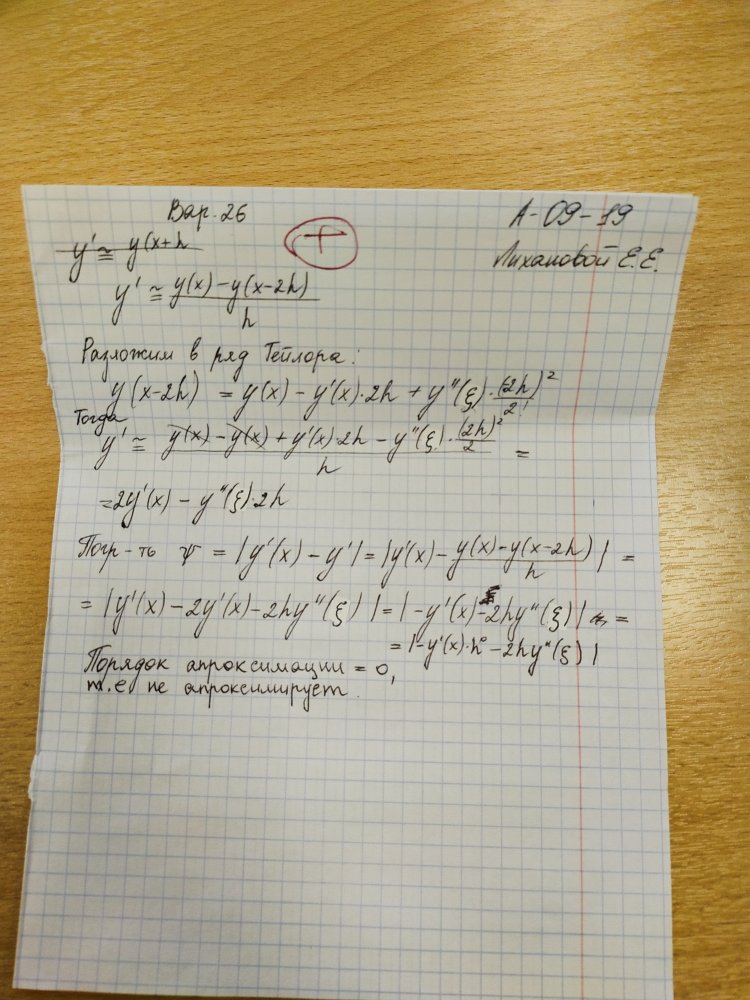 Вар. 26
А-09-19
+
y' ≅ y(x+h
Лихановой Е.Е.
y' ≅ (y(x) - y(x-2h))/h
Разложим в ряд Тейлора:
y(x-2h) = y(x) - y'(x)·2h + y''(ξ)·(2h)²/2!
Тогда
y' ≅ (y(x) - y(x) + y'(x)·2h - y''(ξ)·(2h)²/2)/h =
= 2y'(x) - y''(ξ)·2h
Погр-ть ψ = |y'(x) - y'| = |y'(x) - (y(x) - y(x-2h))/h| =
= |y'(x) - 2y'(x) - 2hy''(ξ)| = |-y'(x) - 2hy''(ξ)| =
= |-y'(x)·h⁰ - 2hy''(ξ)|
Порядок апроксимации = 0,
т.е не апроксимирует.